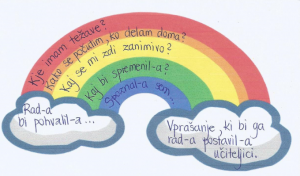 Kje imam težave?
Kako se počutim, ko delam doma?
Kaj se mi zdi zanimivo?
Kaj bi spremenil-a?
Spoznal-a sem...
Rad-a
bi pohvalil-a...
Vprašanje, ki bi ga
rad-a postavil-a
učiteljici.